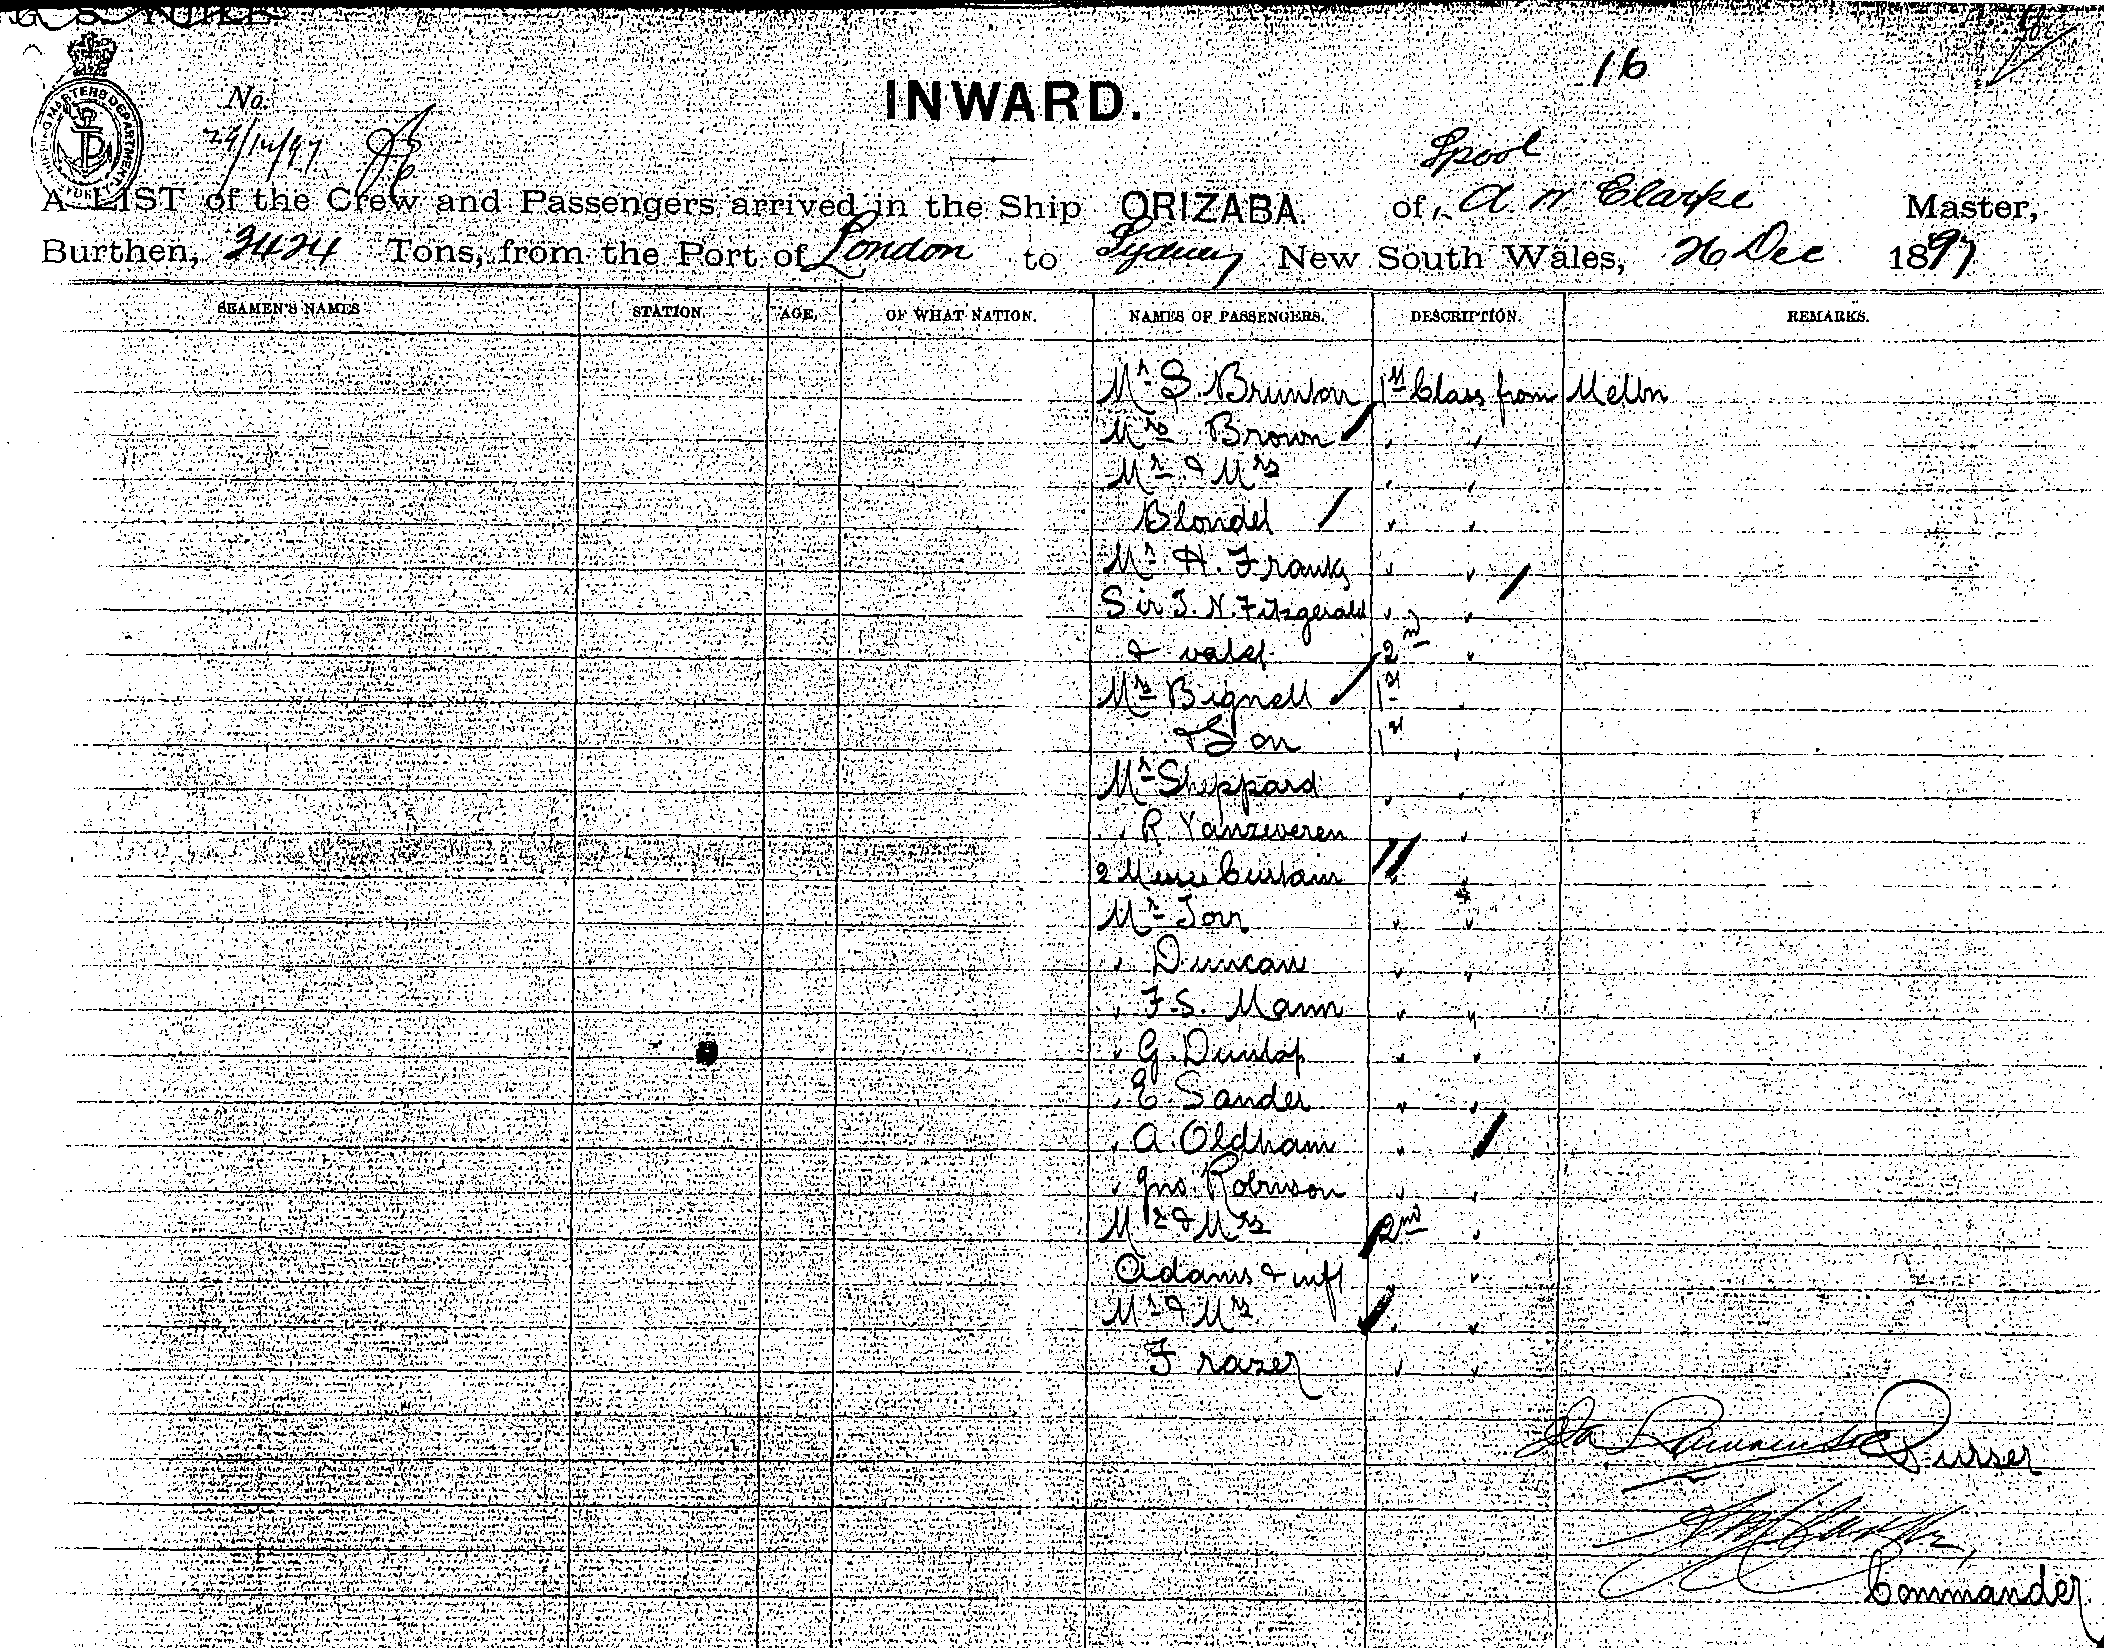 16
No.
INWARD.
29/12/97
Lpool
A LIST of the Crew and Passengers arrived in the Ship ORIZABA. of, A. W Clarke Master,
Burthen, 3424 Tons, from the Port of London to Sydney New South Wales, 26 Dec 1897
SEAMEN'S NAMES STATION. AGE, OF WHAT NATION. NAMES OF PASSENGERS. DESCRIPTION. REMARKS.
Mr S. Brunton 1st Class from Melbn
Mrs Brown " "
Mr & Mrs " "
Blondel " "
Mr H. Franks " "
Sir T. N. Fitzgerald " "
& valet 2nd "
Mrs Bignell 1st "
& Son 1st "
Mr Sheppard " "
" R Vanzeveren "
2 Misses Curtain " "
Mr Torr " "
" Duncan " "
" F. S. Mann " "
" G. Dunlop " "
" E Sander " "
" A. Oldham "
" Jno. Robinson " "
Mr & Mrs 2nd "
Adams & inft "
Mr & Mrs " "
Frazer " "
Purser
Commander